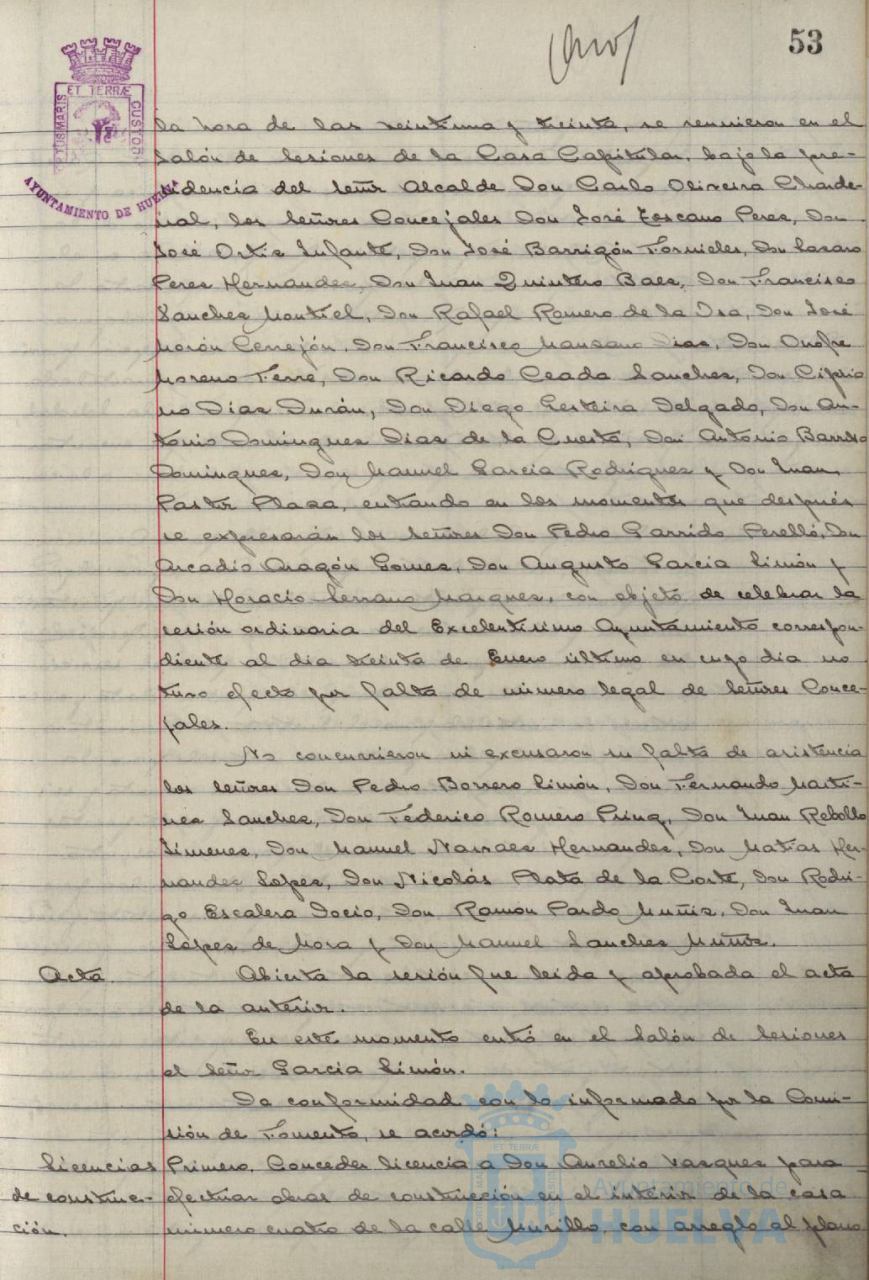 53
PORTUS MARIS ET TERRÆ CUSTODIA
AYUNTAMIENTO DE HUELVA
la hora de las veintiuna y treinta, se reunieron en el
Salón de Sesiones de la Casa Capitular, bajo la pre-
sidencia del Señor Alcalde Don Carlo Oliveira Charde-
nal, los Señores Concejales Don José Toscano Peres, Don
José Ortis Infante, Don José Barrigón Fornieles, Don Lasaro
Peres Hernandes, Don Juan Quintero Baes, Don Francisco
Sanches Montiel, Don Rafael Romero de la Osa, Don José
Morón Cerrejón, Don Francisco Mansano Dias, Don Onofre
Moreno Ferre, Don Ricardo Ceada Sanches, Don Cipria
no Dias Durán, Don Diego Lesteira Delgado, Don An-
tonio Domingues Dias de la Cuesta, Don Antonio Barroso
Domingues, Don Manuel Garcia Rodrigues y Don Juan
Pastor Plasa, entrando en los momentos que después
se expresarán los Señores Don Pedro Garrido Perelló, Don
Arcadio Aragón Gomes, Don Augusto Garcia Simón y
Don Horacio Serrano Marques, con objeto de celebrar la
sesión ordinaria del Excelentísimo Ayuntamiento correspon-
diente al dia treinta de Enero último en cuyo dia no
tuvo efecto por falta de número legal de Señores Conce-
jales.
No concurrieron ni excusaron su falta de asistencia
los Señores Don Pedro Borrero Simón, Don Fernando Marti-
nes Sanches, Don Federico Romero Prinq, Don Juan Rebollo
Jimenes, Don Manuel Narvaes Hernandes, Don Matías Her-
nandes Lopes, Don Nicolás Plata de la Corte, Don Rodri-
go Escalera Docio, Don Ramón Pardo Muñis, Don Juan
Lopes de Mora y Don Manuel Sanches Muñis.
Acta. Abierta la sesión fue leida y aprobada el acta
de la anterior.
En este momento entró en el Salón de Sesiones
el Señor Garcia Simón.
De conformidad con lo informado por la Comi-
sión de Fomento, se acordó:
Licencias Primero. Conceder licencia a Don Aurelio Vasques para
de construc- efectuar obras de construcción en el interior de la casa
ción. número cuatro de la calle Murillo, con arreglo al plano
Ayuntamiento de
HUELVA